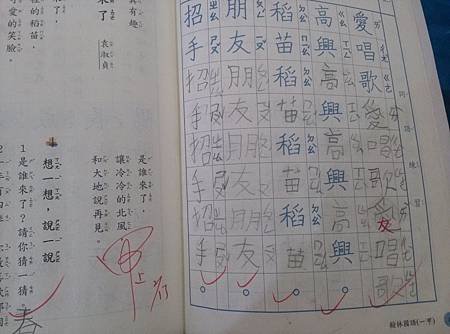 詞語練習：
愛唱歌愛唱歌愛唱歌
友
高興高興高興高興。
稻苗稻苗稻苗稻苗。
朋友朋友朋友朋友。
招手招手招手招手。
翰林國語(一下)
有趣
來了 袁淑貞
裡的稻苗，
可愛的笑臉。
是誰來了，
讓冷冷的北風
和大地說再見。
甲上
想一想，說一說
1 是誰來了？請你猜一猜。
春